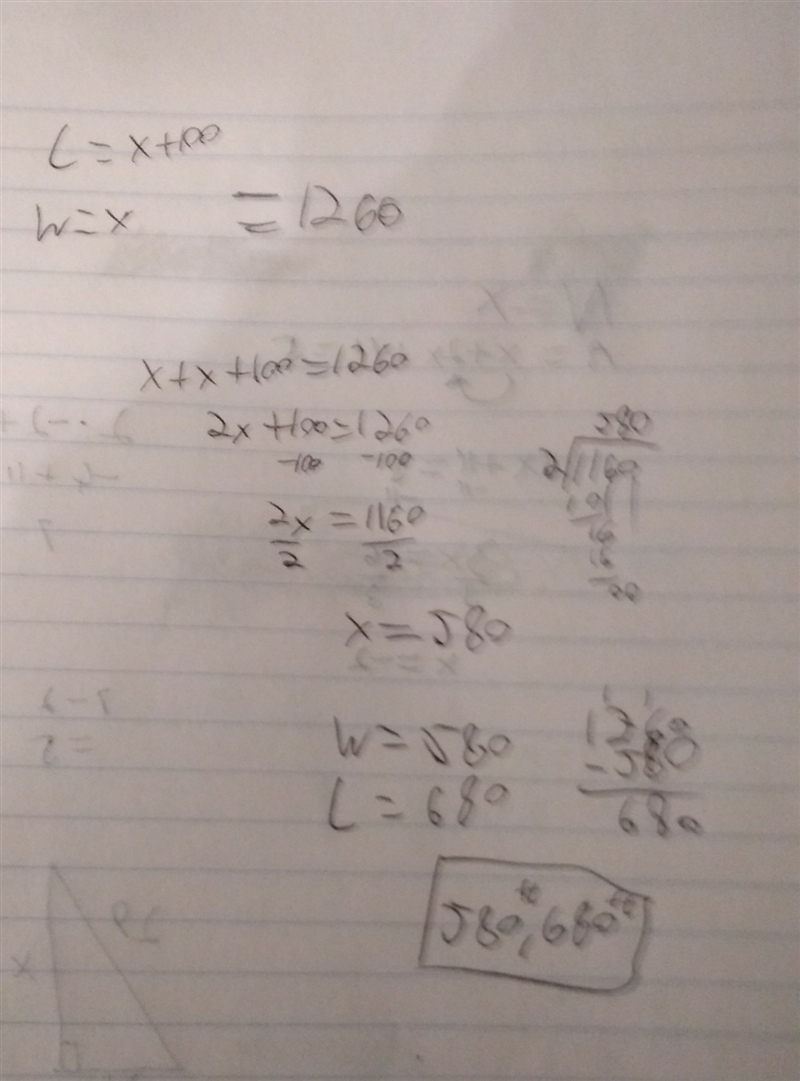 L = x+100
W = x = 1260
x + x + 100 = 1260
2x + 100 = 1260
-100 -100
580
2 1160
10
16
16
00
2x = 1160
2 2
x = 580
W = 580
L = 680
1260
-580
680
580 ft, 680 ft